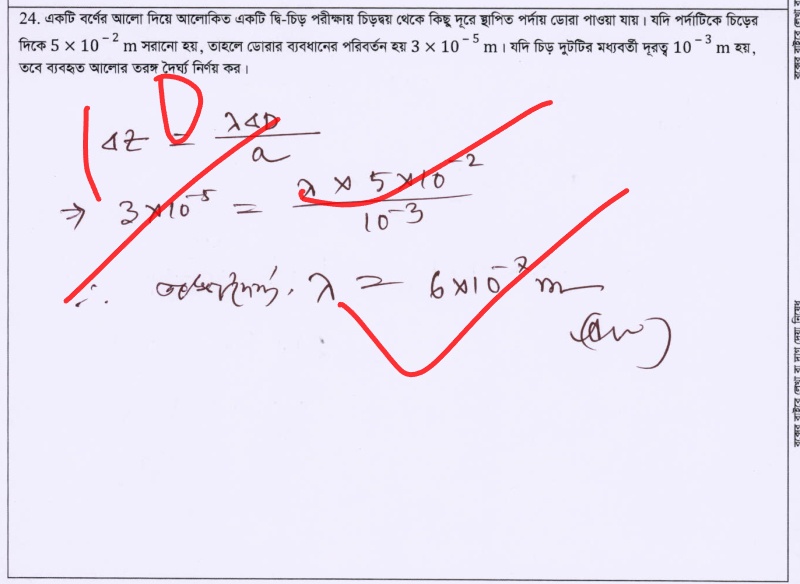 24. একটি বর্ণের আলো দিয়ে আলোকিত একটি দ্বি-চিড় পরীক্ষায় চিড়দ্বয় থেকে কিছু দূরে স্থাপিত পর্দায় ডোরা পাওয়া যায়। যদি পর্দাটিকে চিড়ের
দিকে 5 × 10⁻² m সরানো হয়, তাহলে ডোরার ব্যবধানের পরিবর্তন হয় 3 × 10⁻⁵ m। যদি চিড় দুটটির মধ্যবর্তী দূরত্ব 10⁻³ m হয়,
তবে ব্যবহৃত আলোর তরঙ্গ দৈর্ঘ্য নির্ণয় কর।
ΔZ = λΔD / a
⇒ 3×10⁻⁵ = λ × 5×10⁻² / 10⁻³
∴ তরঙ্গদৈর্ঘ্য, λ = 6×10⁻⁷ m
(Ans)